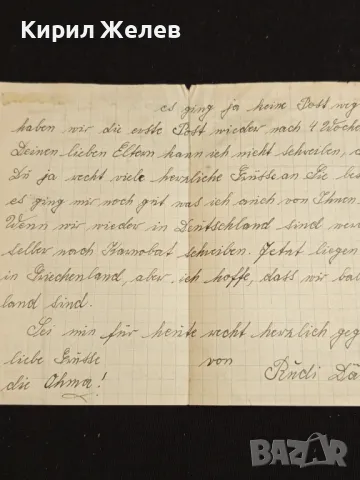 Кирил Желев
es ging ja keine Post weg
haben wir die erste Post wieder nach 4 Woche
Deinen lieben Eltern kann ich nicht schreiben,
Du ja recht viele herzliche Grüsse an Sie bes
es ging mir noch gut was ich auch von Ihnen
Wenn wir wieder in Deutschland sind wer
seller nach Karnobat schreiben. Jetzt liegen
in Griechenland, aber ich hoffe, dass wir bal
land sind.
Sei mir für heute recht herzlich geg
liebe Grüsse von Rudi Dä
die Ohma!
BAZAR